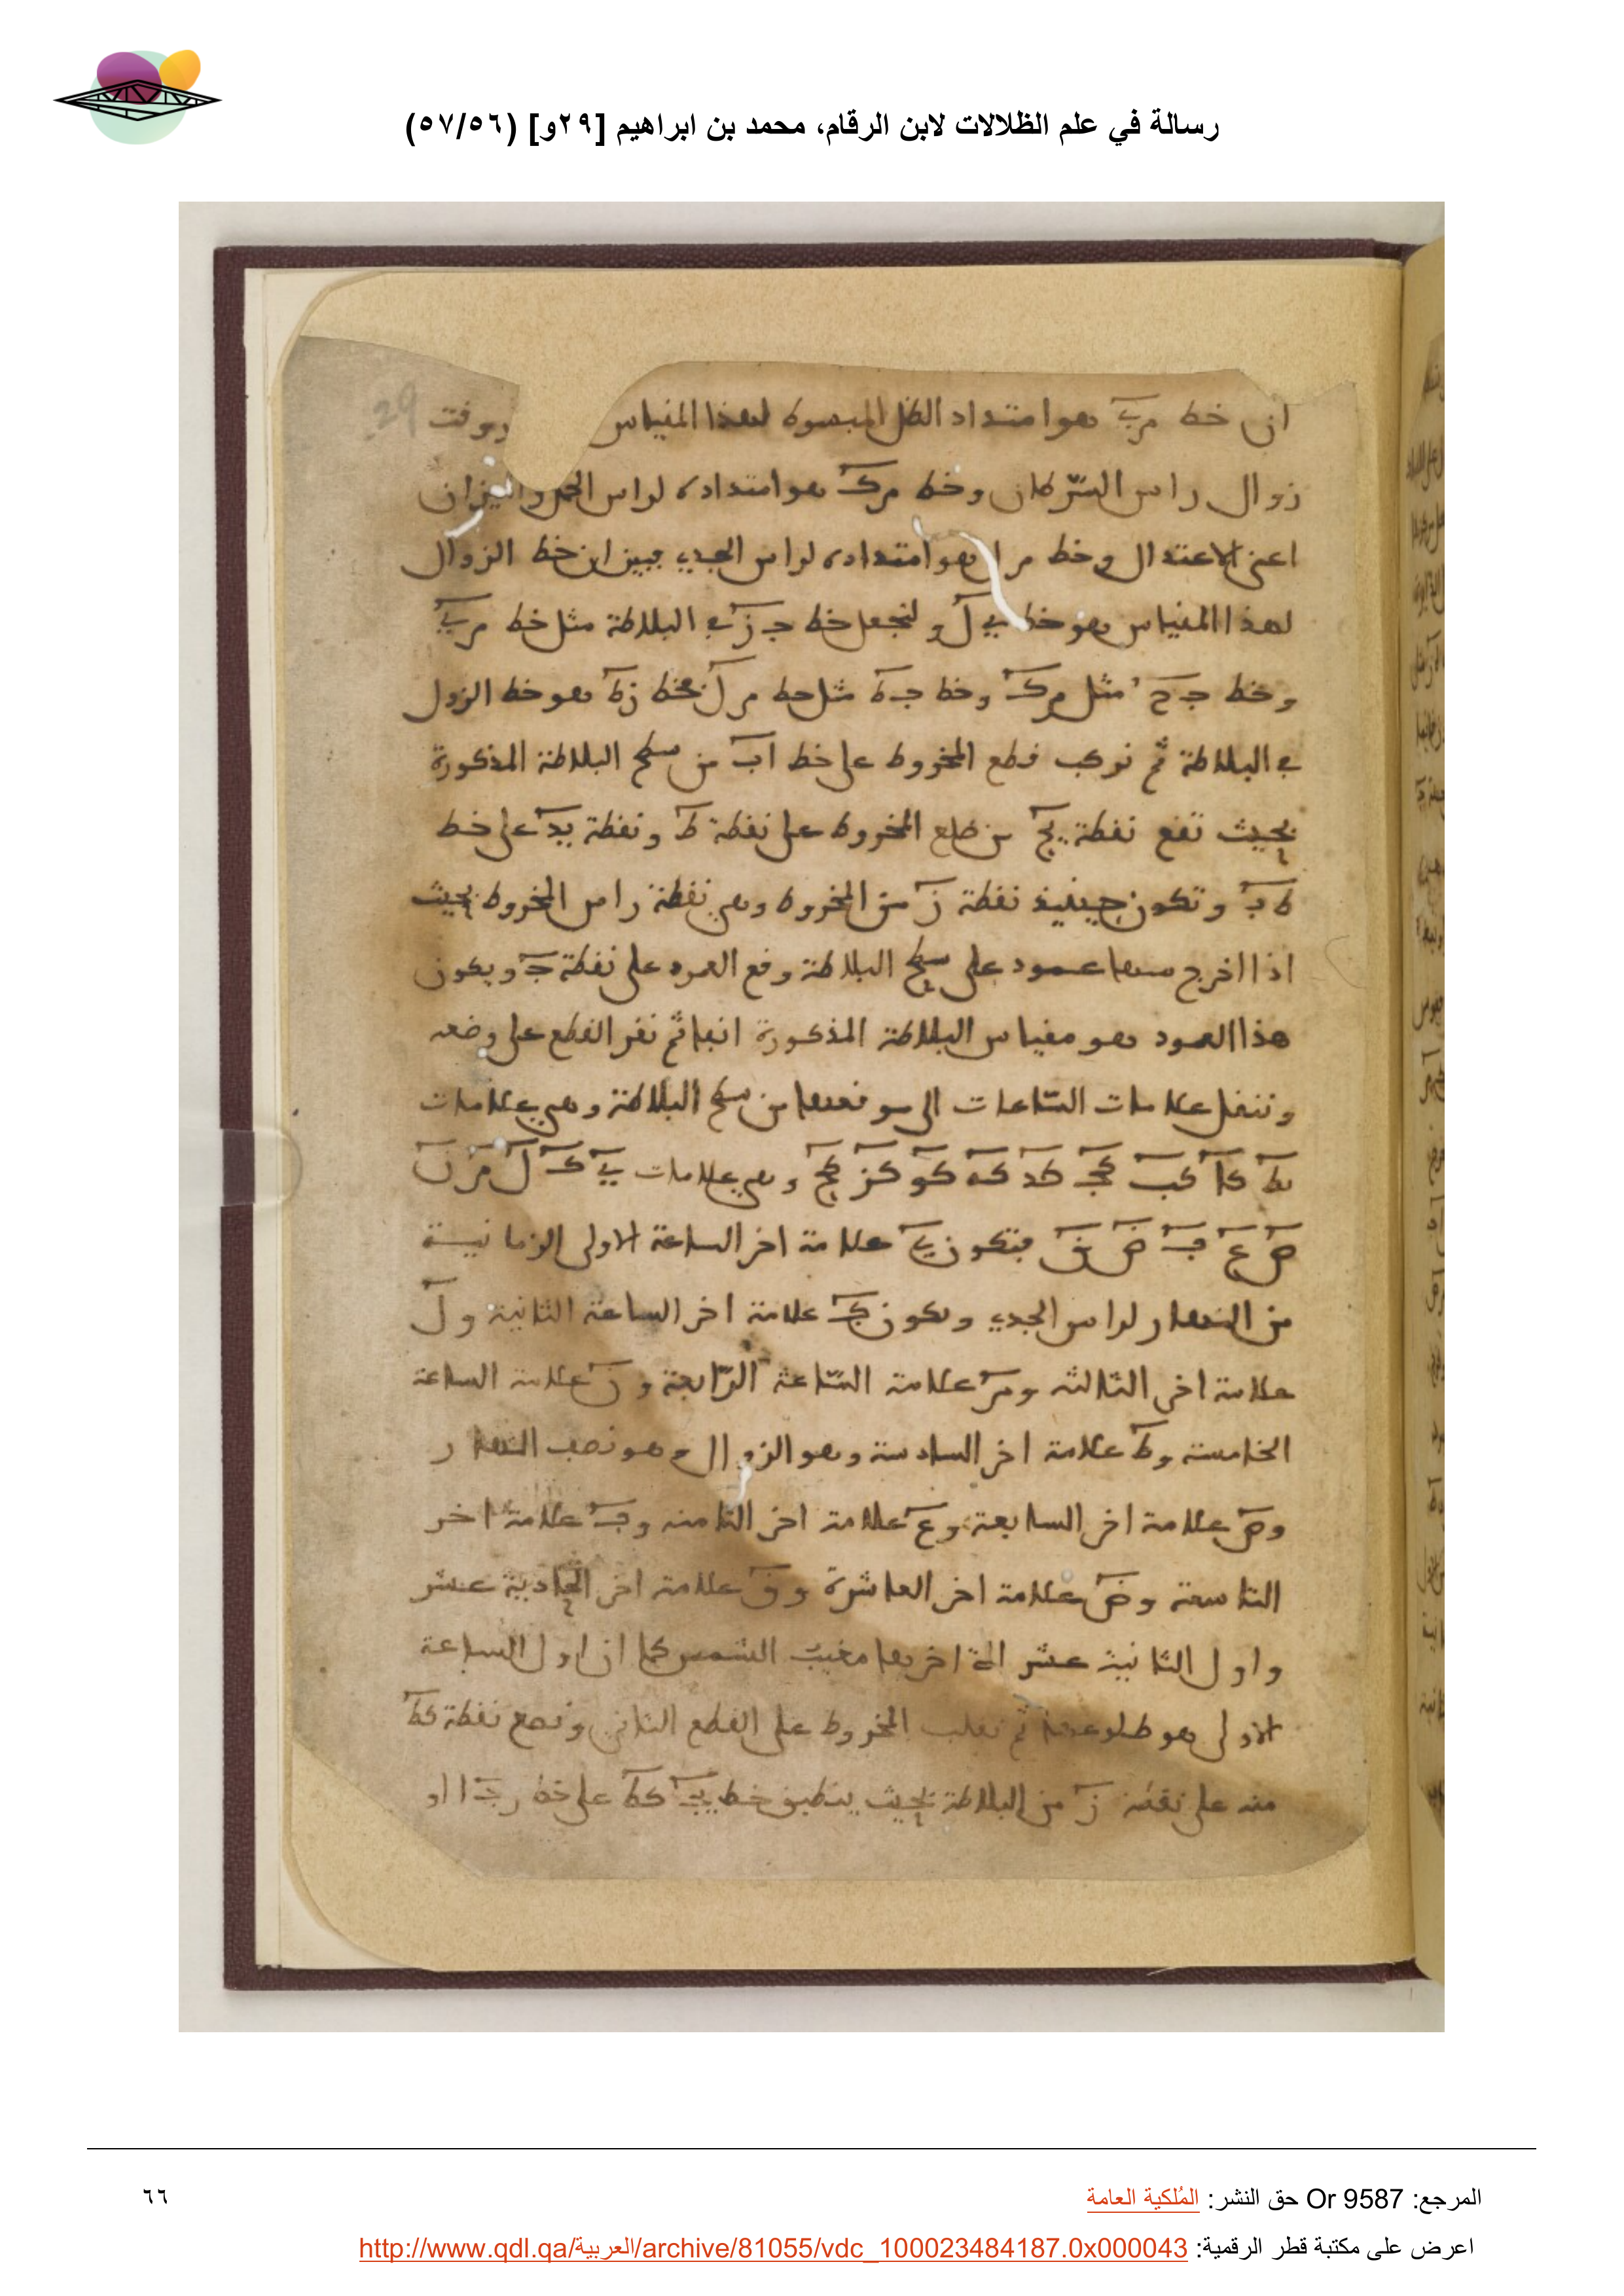 رسالة في علم الظلالات لابن الرقام، محمد بن ابراهيم [٢٩و] (٥٧/٥٦)
29
ان خط مي هو امتداد الظل المبسوط لهذا المقياس وقت
زوال راس السرطان وخط مك هو امتداده لراس الحمل والميزان
اعني الاعتدال وخط مل هو امتداده لراس الجدي فبين ان خط الزوال
لهذا المقياس هو خط ي ل ولنجعل خط ج ز في البلاطة مثل خط م ي
وخط ج ح مثل م ك وخط ج ط مثل خط م ل فخط ز ط هو خط الزول
في البلاطة ثم نركب قطع المخروط على خط ا ب من سطح البلاطة المذكورة
بحيث تقع نقطة يج من ضلع المخروط على نقطة ط ونقطة يد على خط
ط ب وتكون حينيذ نقطة ز من المخروط وهي نقطة راس المخروط بحيث
اذا اخرج منها عمود على سطح البلاطة وقع العمود على نقطة ج ويكون
هذا العمود هو مقياس البلاطة المذكورة انفا ثم نقر القطع على وضعه
وننقل علامات الساعات الى موقعها من سطح البلاطة وهي علامات
يط كا كب كج كد كه كو كز كح وهي علامات ي ك ل م ن
ص ع ف ض ق فتكون ي علامة اخر الساعة الاولى الزمانية
من النهار لراس الجدي وتكون ك علامة اخر الساعة الثانية و ل
علامة اخر الثالثه و م علامة الساعة الرابعة و ن علامة الساعة
الخامسة و ط علامة اخر السادسة وهو الزوال وهو نصف النهار
و ص علامة اخر السابعة و ع علامة اخر الثامنه و ف علامة اخر
التاسعة و ض علامة اخر العاشرة و ق علامة اخر الحادية عشر
واول الثانية عشر التي اخرها مغيب الشمس كما ان اول الساعة
الاولى هو طلوعها ثم نقلب المخروط على القطع الثاني ونضع نقطة كط
منه على نقطة ز من البلاطة بحيث ينطبق خط يج كط على خط ز ج ا او
المرجع: Or 9587 حق النشر: المُلكية العامة
٦٦
اعرض على مكتبة قطر الرقمية: http://www.qdl.qa/العربية/archive/81055/vdc_100023484187.0x000043